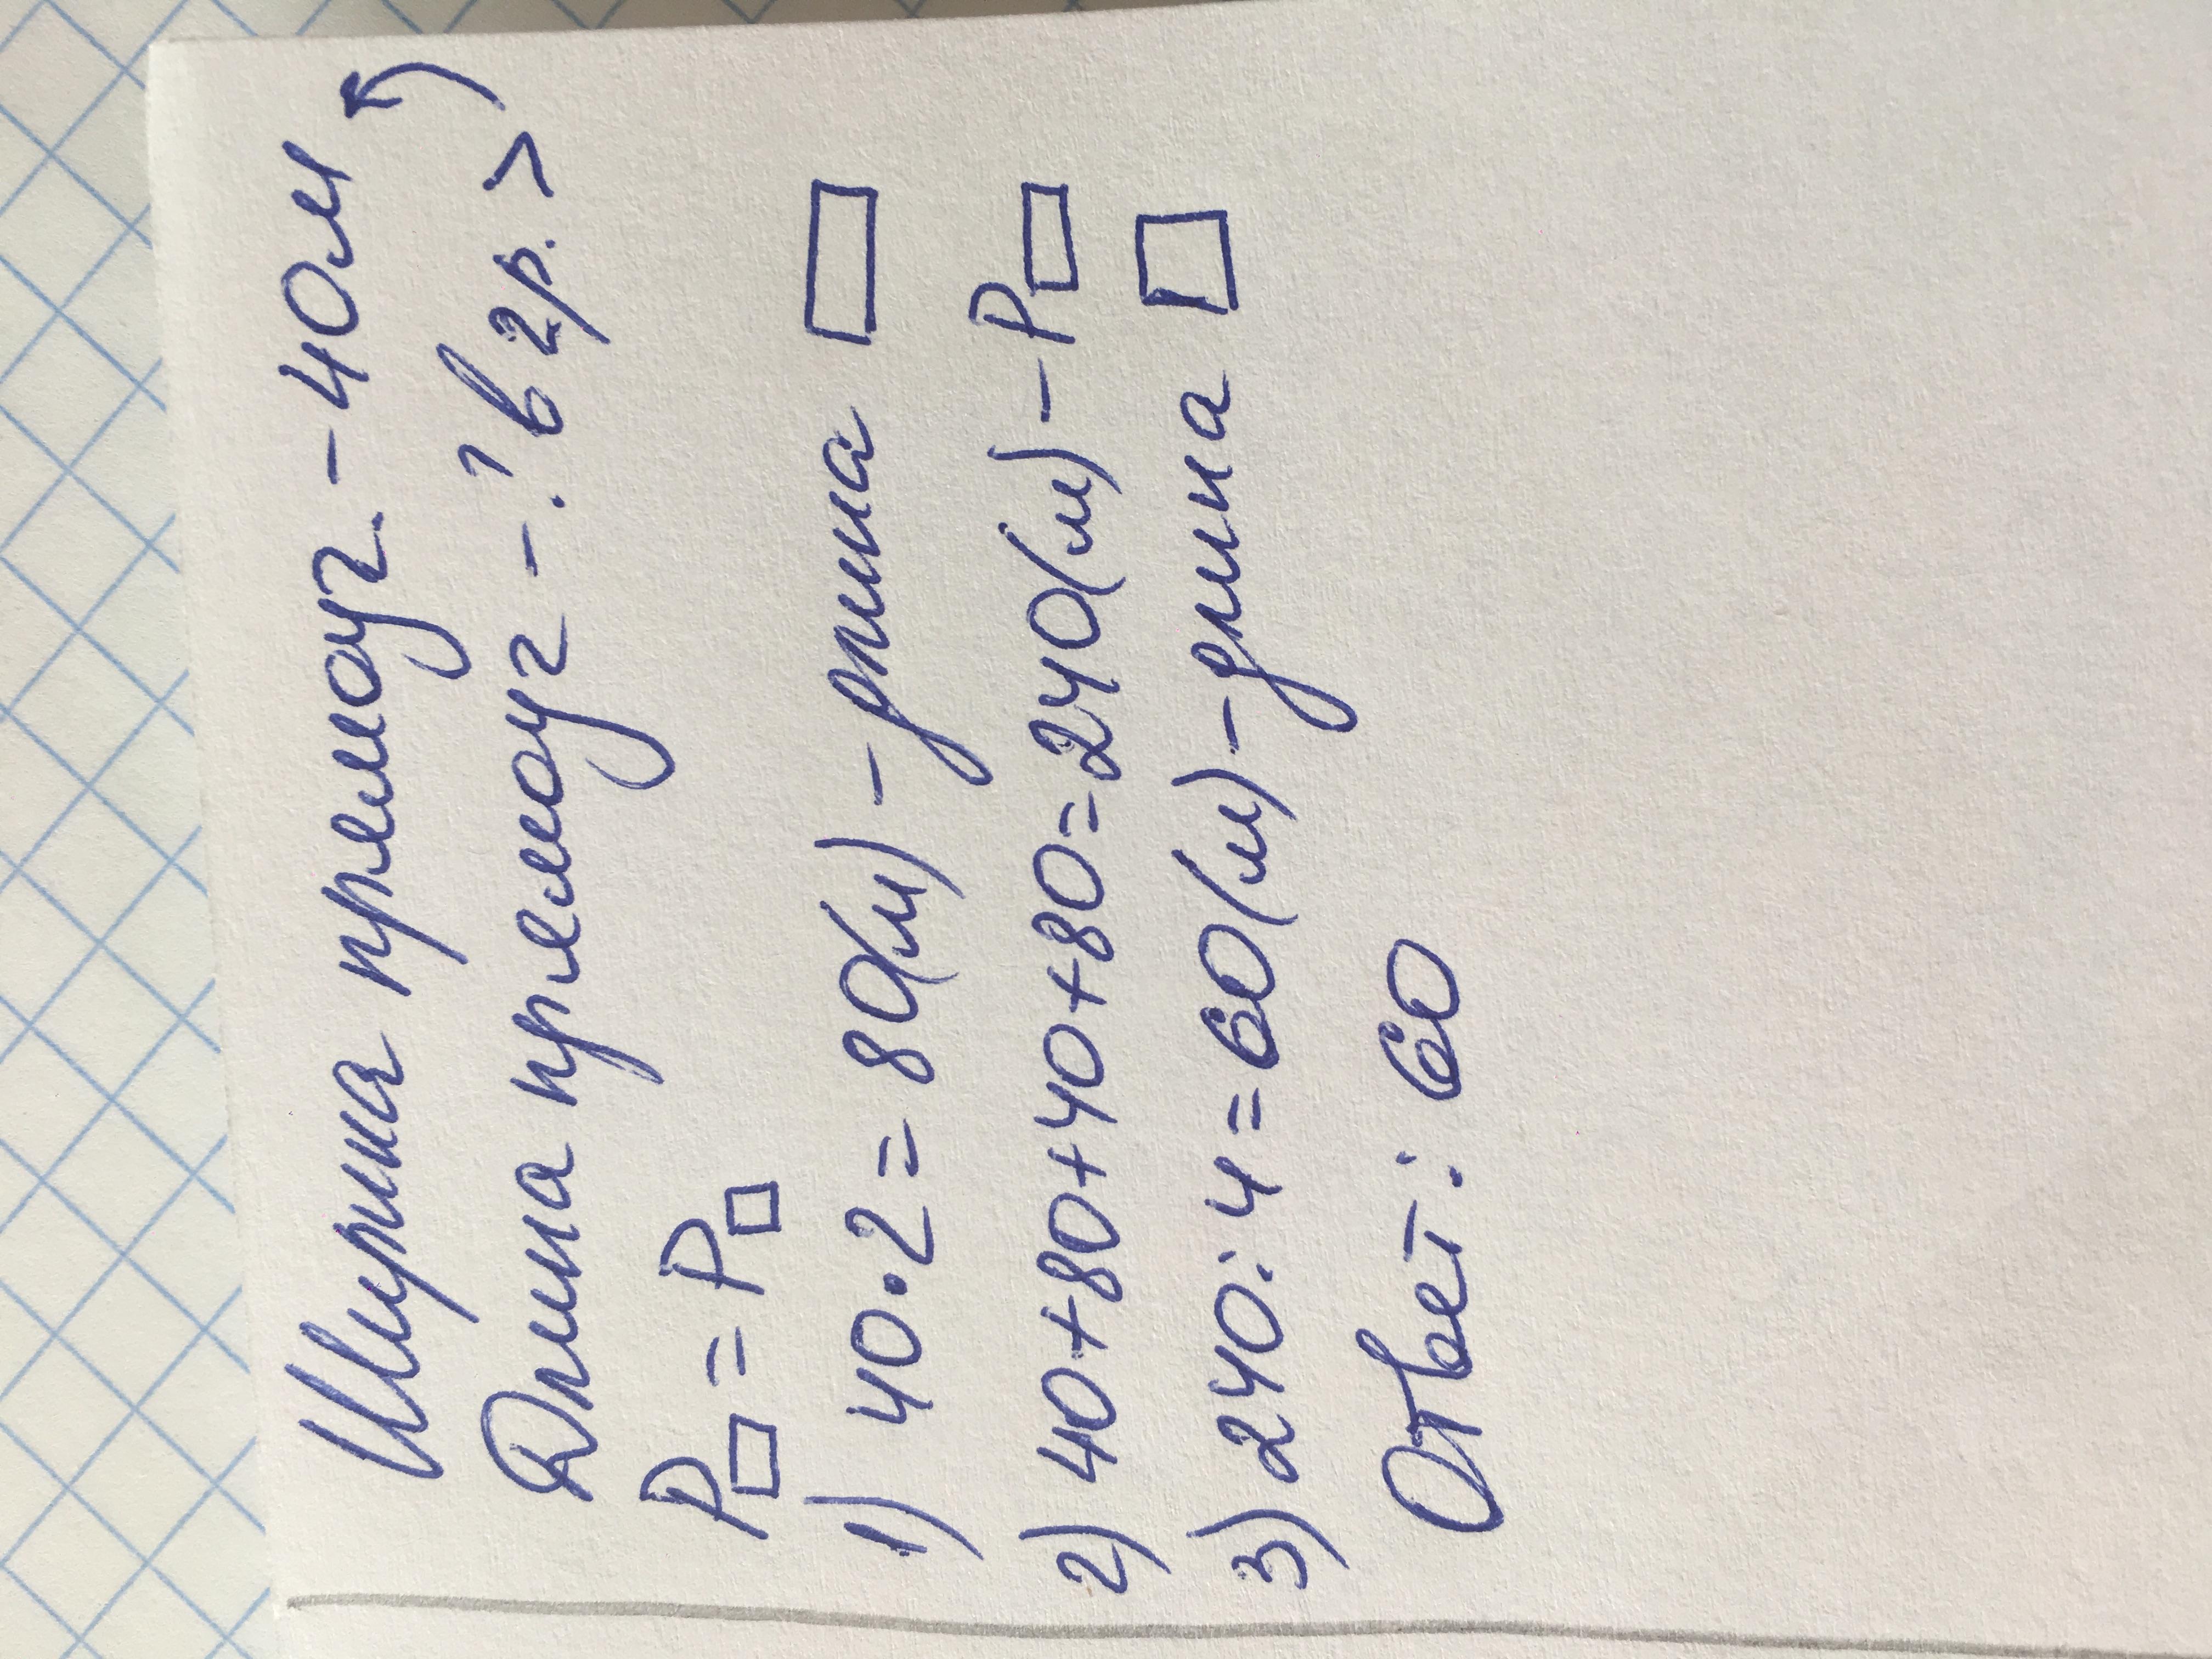 Ширина прямоуг. - 40м
Длина прямоуг - ? в 2р. >
P▭ = P□
1) 40 · 2 = 80(м) - длина ▭
2) 40+80+40+80=240(м) - P▭
3) 240 : 4 = 60(м) - длина □
Ответ: 60